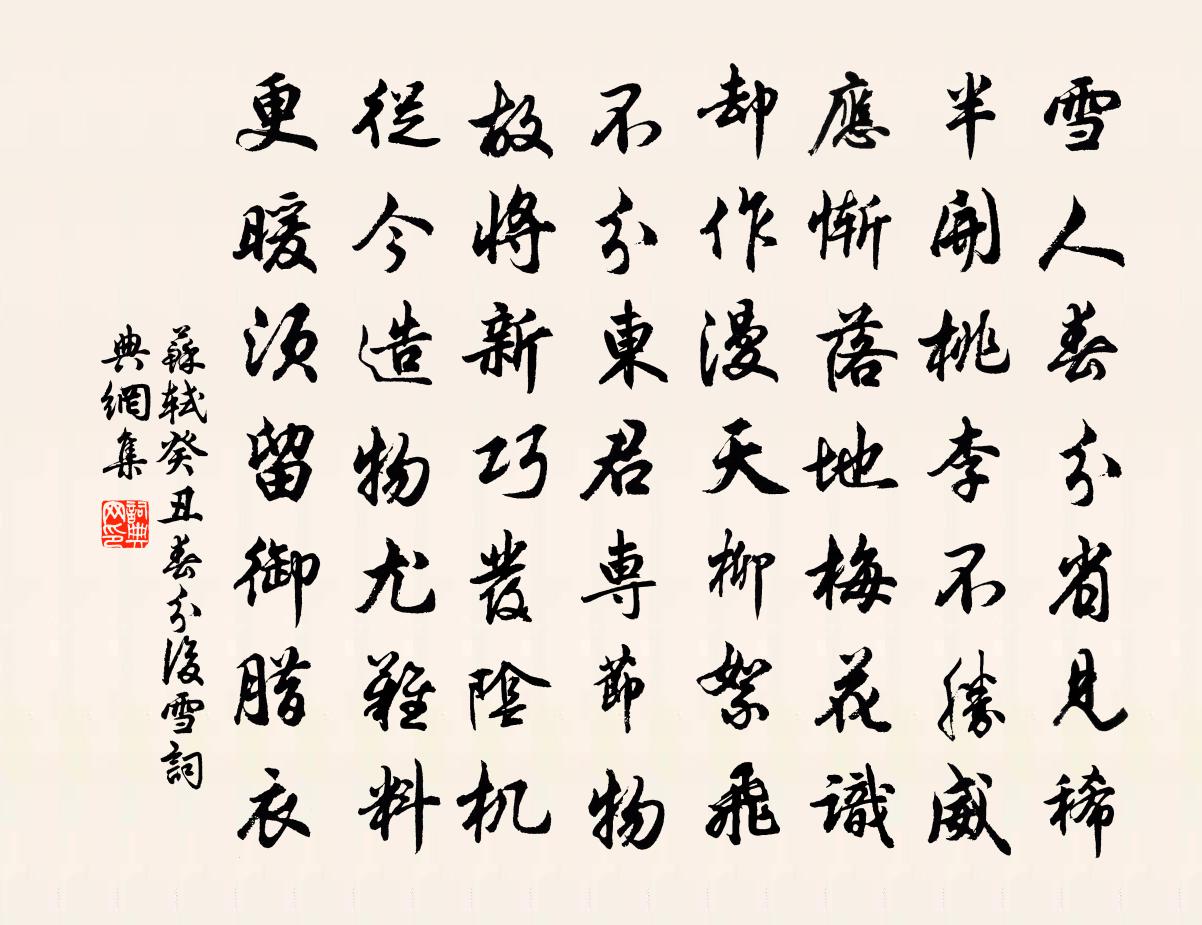 雪人春分省見稀
半開桃李不勝威
應慚落地梅花識
却作漫天柳絮飛
不分東君専節物
故將新巧發陰机
從今造物尤難料
更暖須留御腊衣
蘇軾癸丑春分後雪詞
典網集
詞典网印